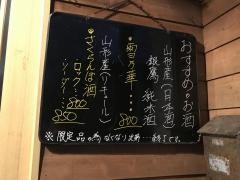 おすすめのお酒
山形産(日本酒)
銀鷹 純米酒
・雪乃華…800
山形産(リキュール)
・さくらんぼ酒
ロック…800
ソーダ…850
※限定品の為なくなり次第…終了です。